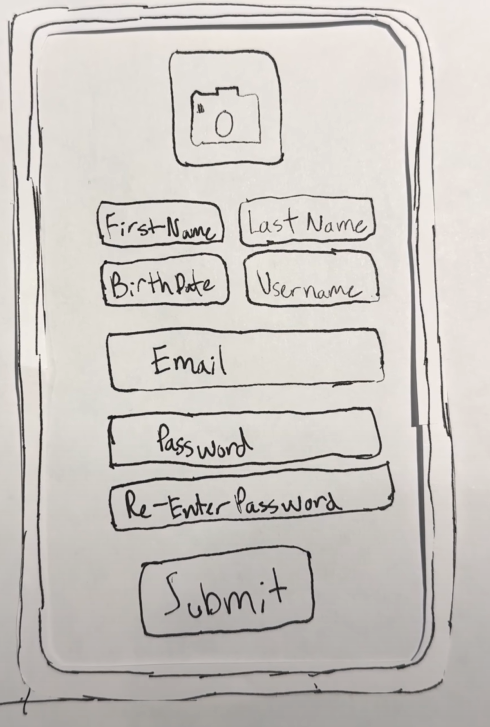 First Name Last Name
BirthDate Username
Email
Password
Re-Enter Password
Submit